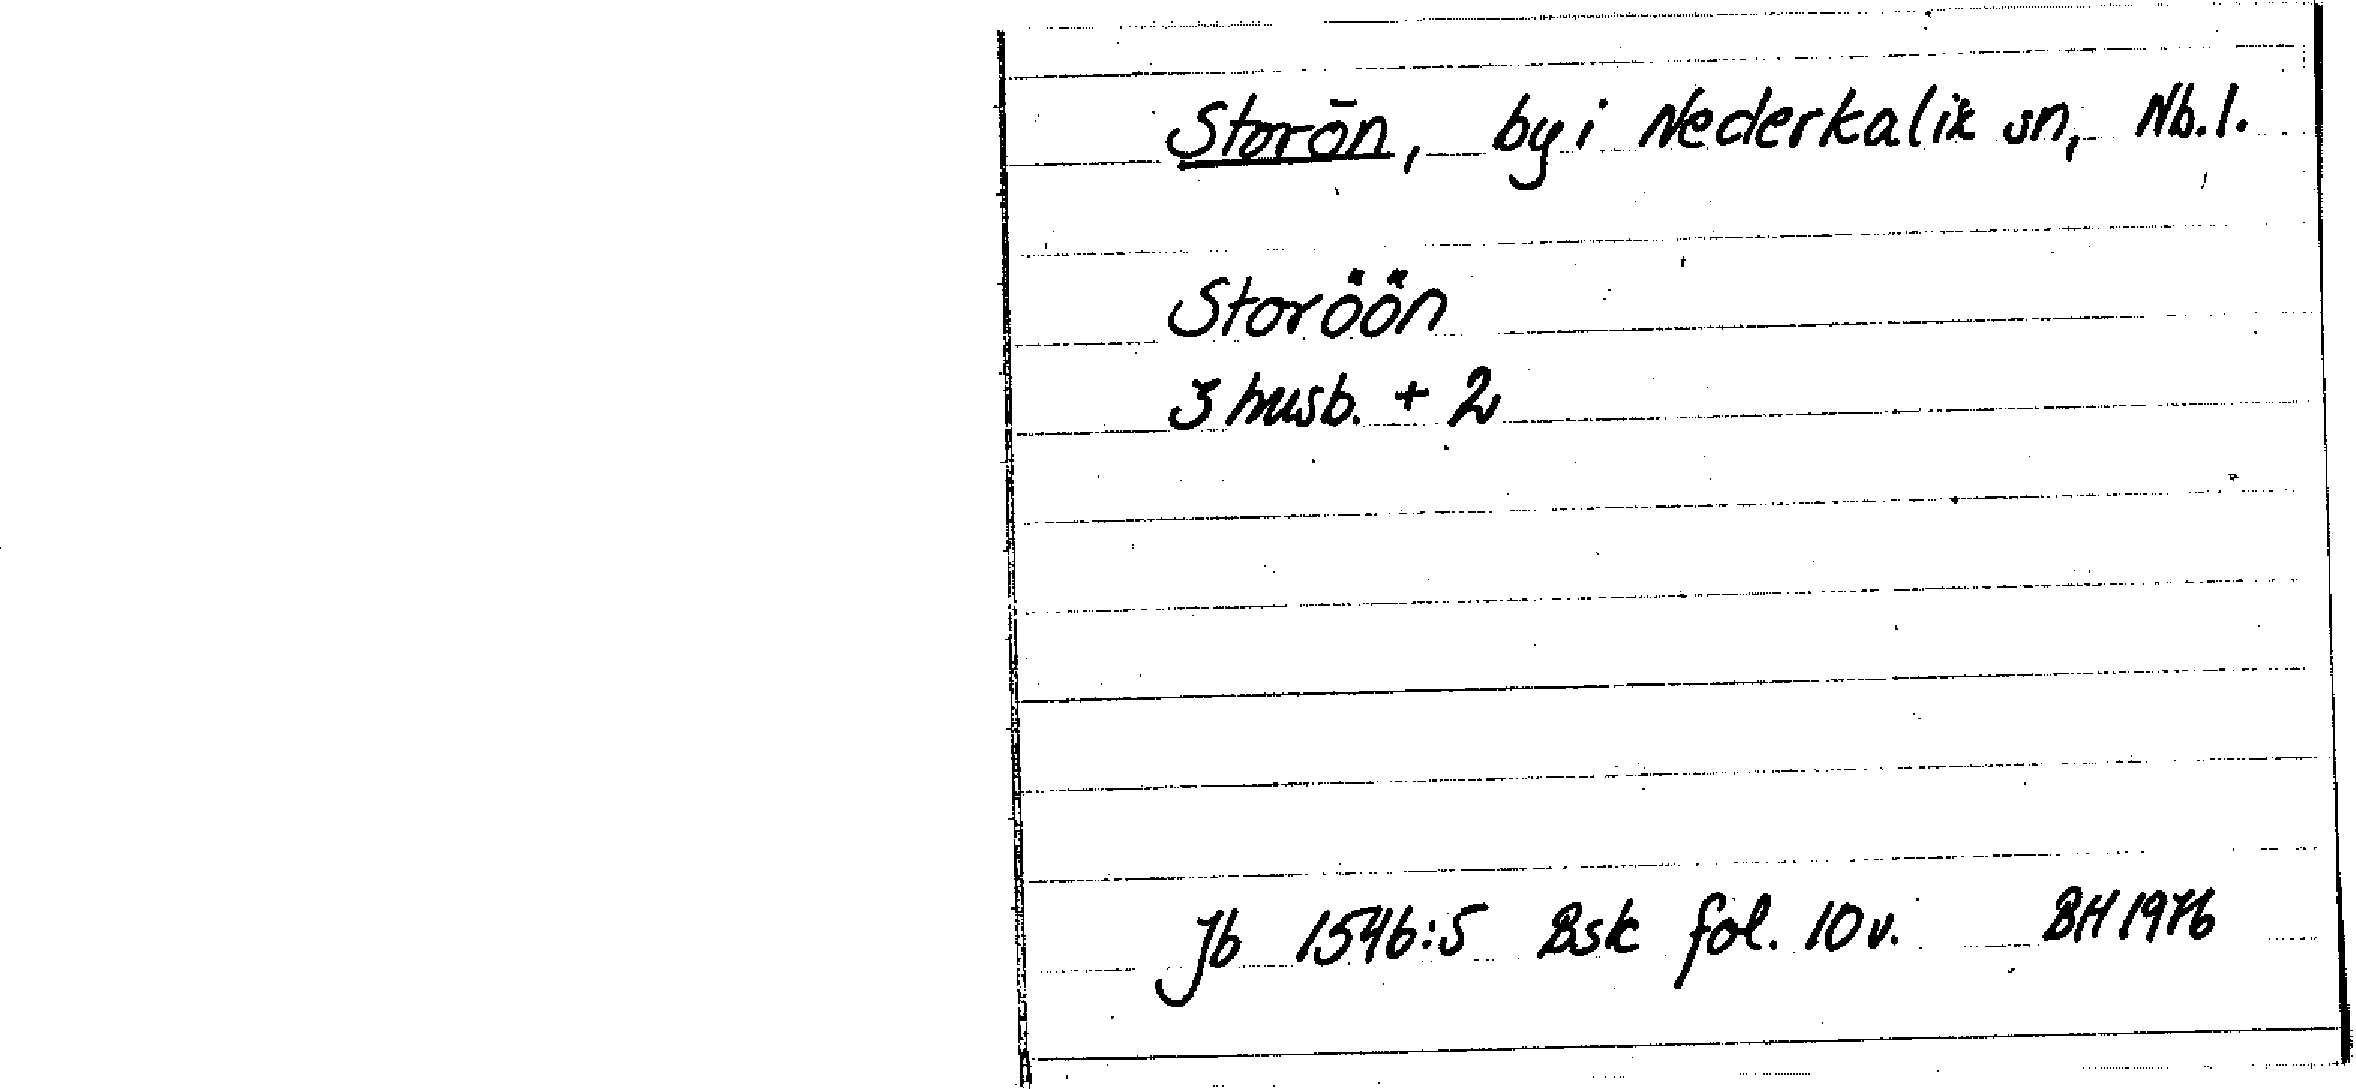 Storön, by i Nederkalix sn, Nb.l.
Storöön
3 husb. + 2
Jb 1546:5 Bsk fol. 10 v. BH 1976